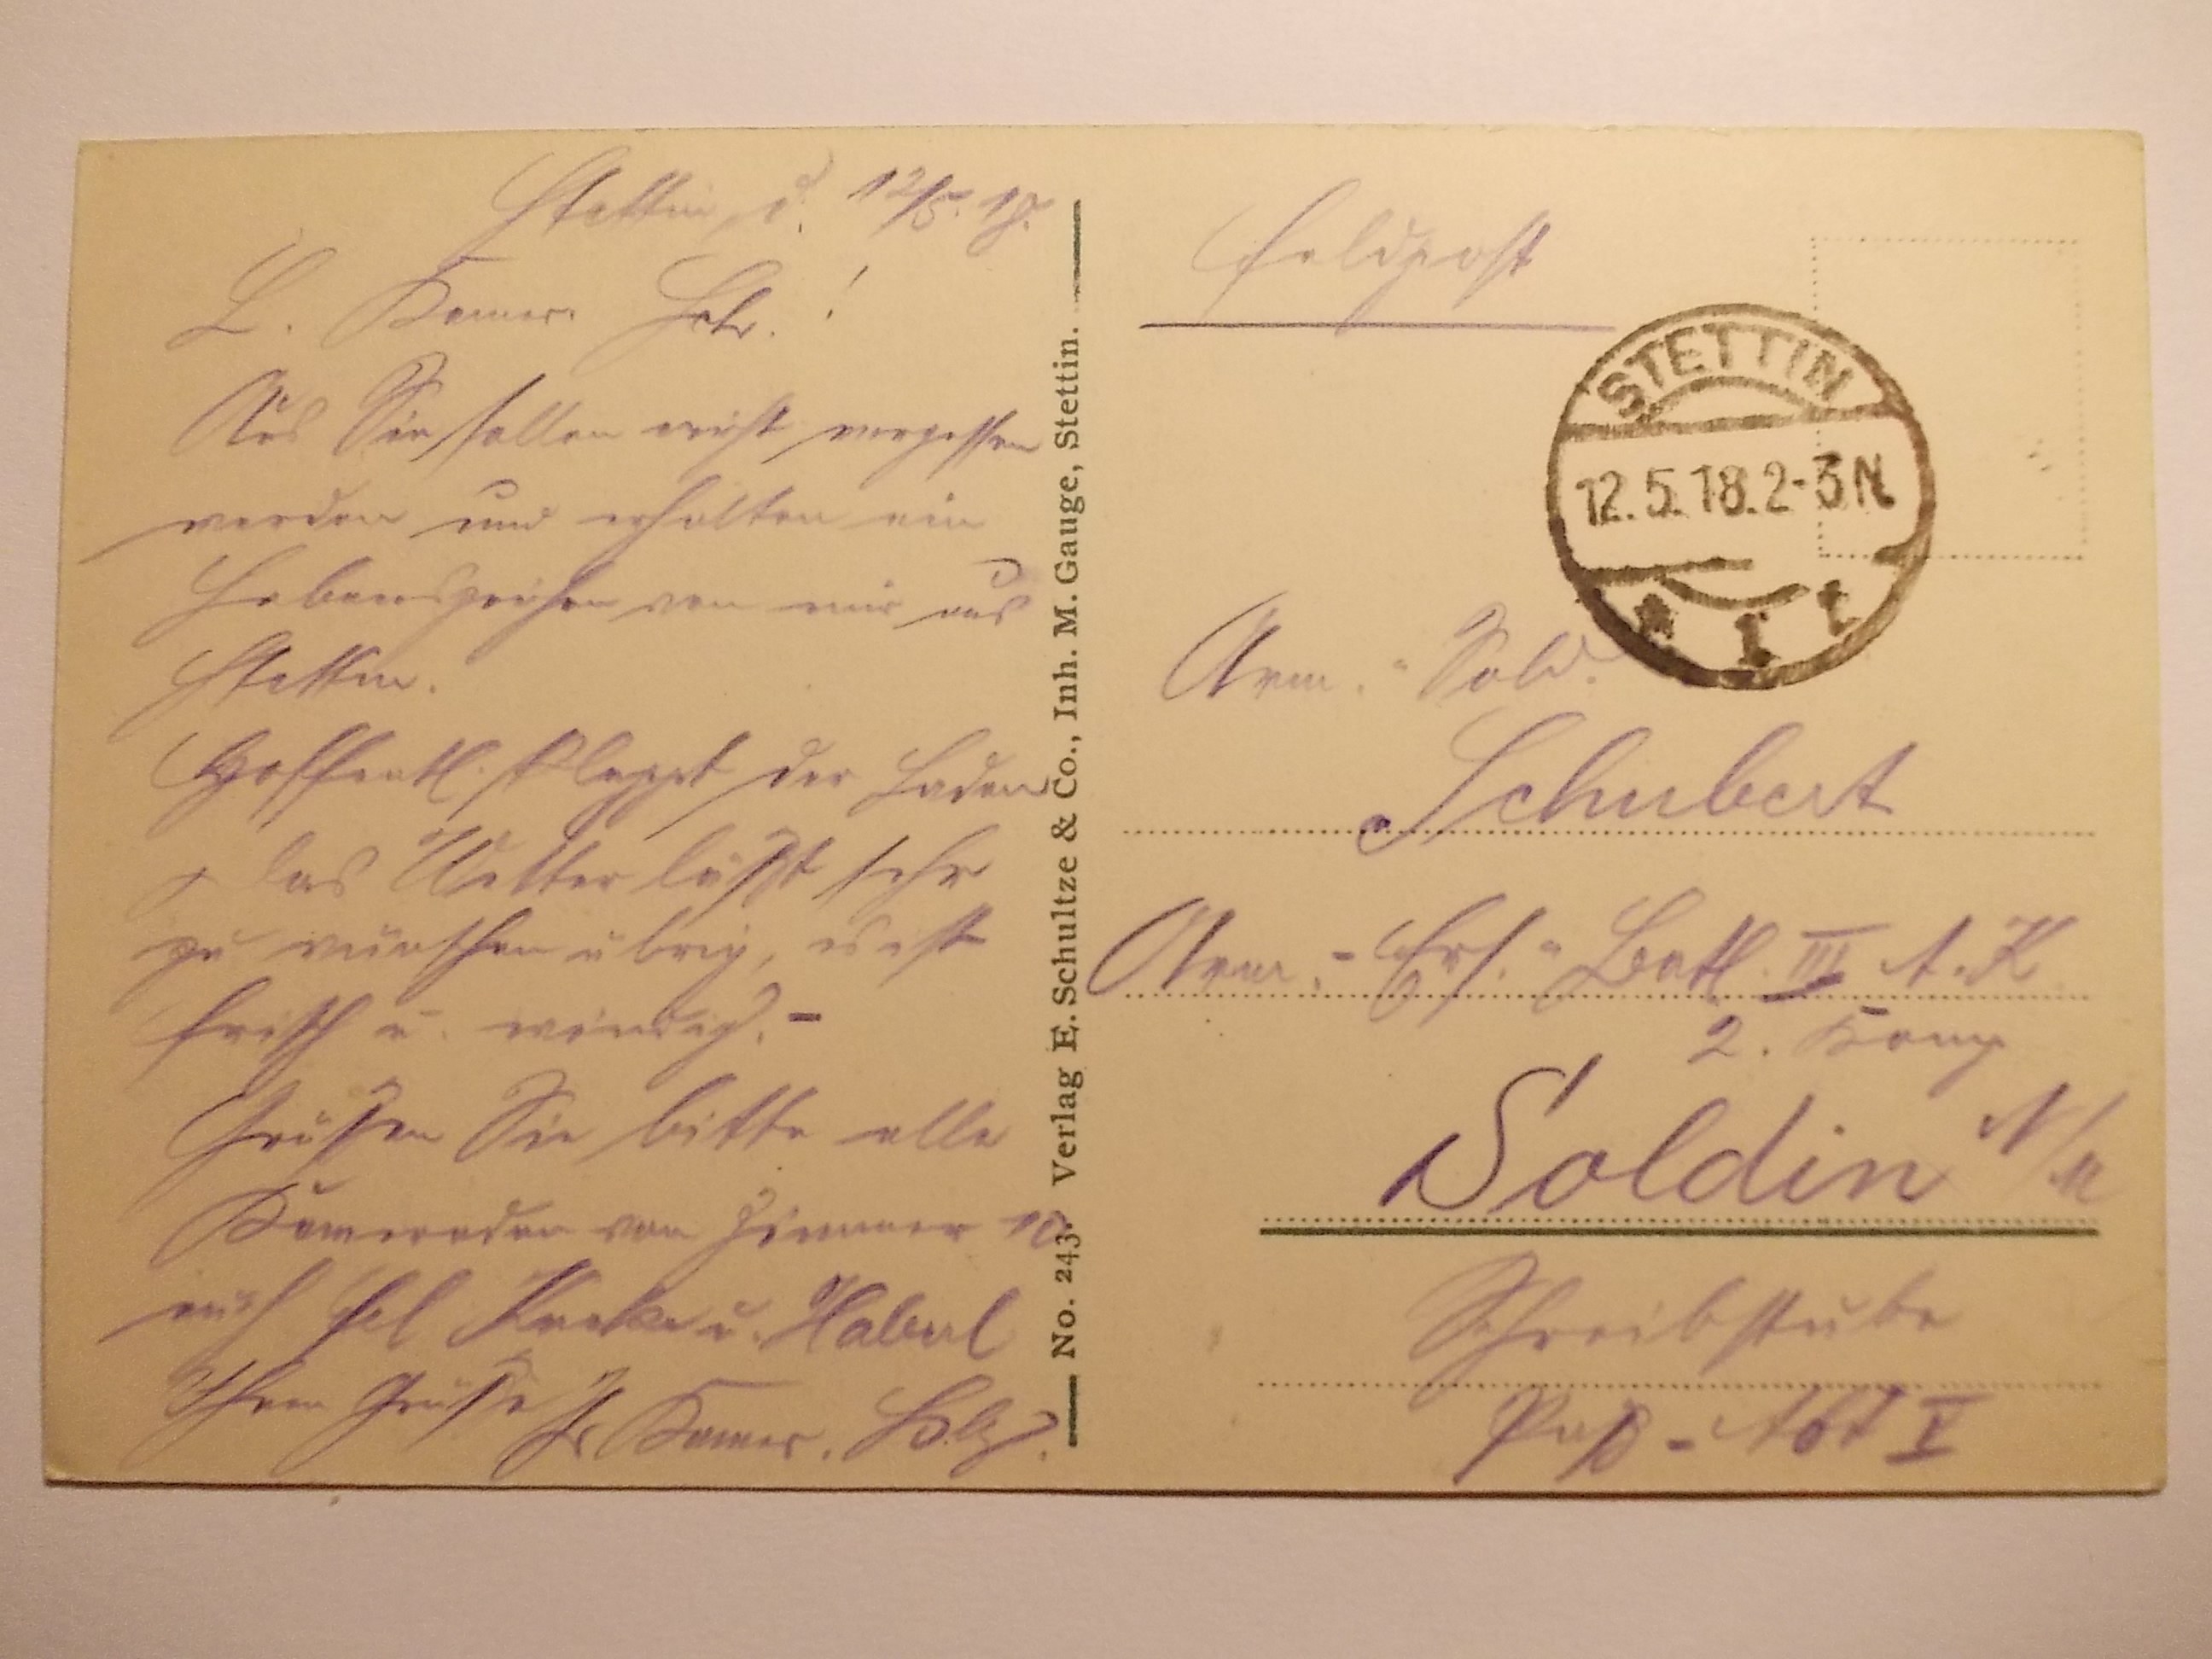 Stettin, d. 12/5. 18.
L. Kamer. Sch.!
Auch Sie sollen nicht vergessen
werden und erhalten ein
Lebenszeichen von mir aus
Stettin.
Hoffentl. klappt der Laden
das Wetter läßt sehr
zu wünschen übrig, es ist
frisch u. windig. -
Grüßen Sie bitte alle
Kameraden von Zimmer 10
auch u. Haberl
Ihr Kamer. Holz.
No. 243. Verlag E. Schultze & Co., Inh. M. Gauge, Stettin.
Feldpost
STETTIN
12.5.18.2-3N
* 1 t
Arm.-Sold.
Schubert
Arm.-Ers.-Batl III A.K
2. Komp
Soldin N/M
Schreibstube
Paß-Abt V